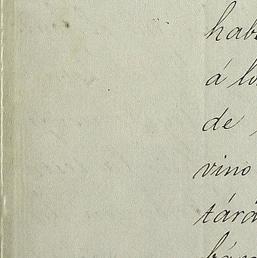 hab
á lo
de
vino
tárá